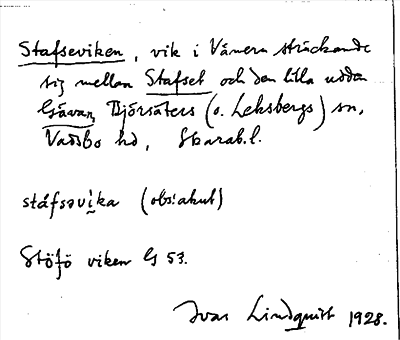 Stafseviken, vik i Vänern sträckande
sig mellan Stafset och den lilla udden
Gåvan, Björsäters (o. Leksbergs) sn,
Vadsbo hd, Skarab. l.
stáfsəvi̬ka (obs! akut)
Stöfö viken G 53.
Ivar Lindquist 1928.